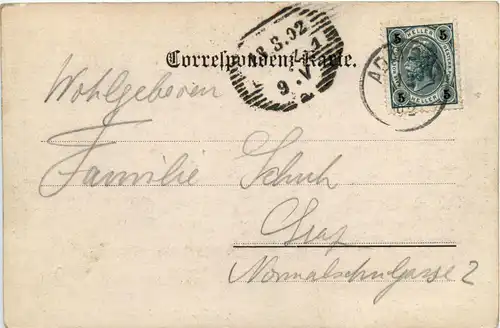 Correspondenz-Karte.
8.3.02
9.V
AD
5 HELLER 5
5 HELLER 5
Wohlgeboren
Familie Schuh
Graz
Normalschulgasse 2